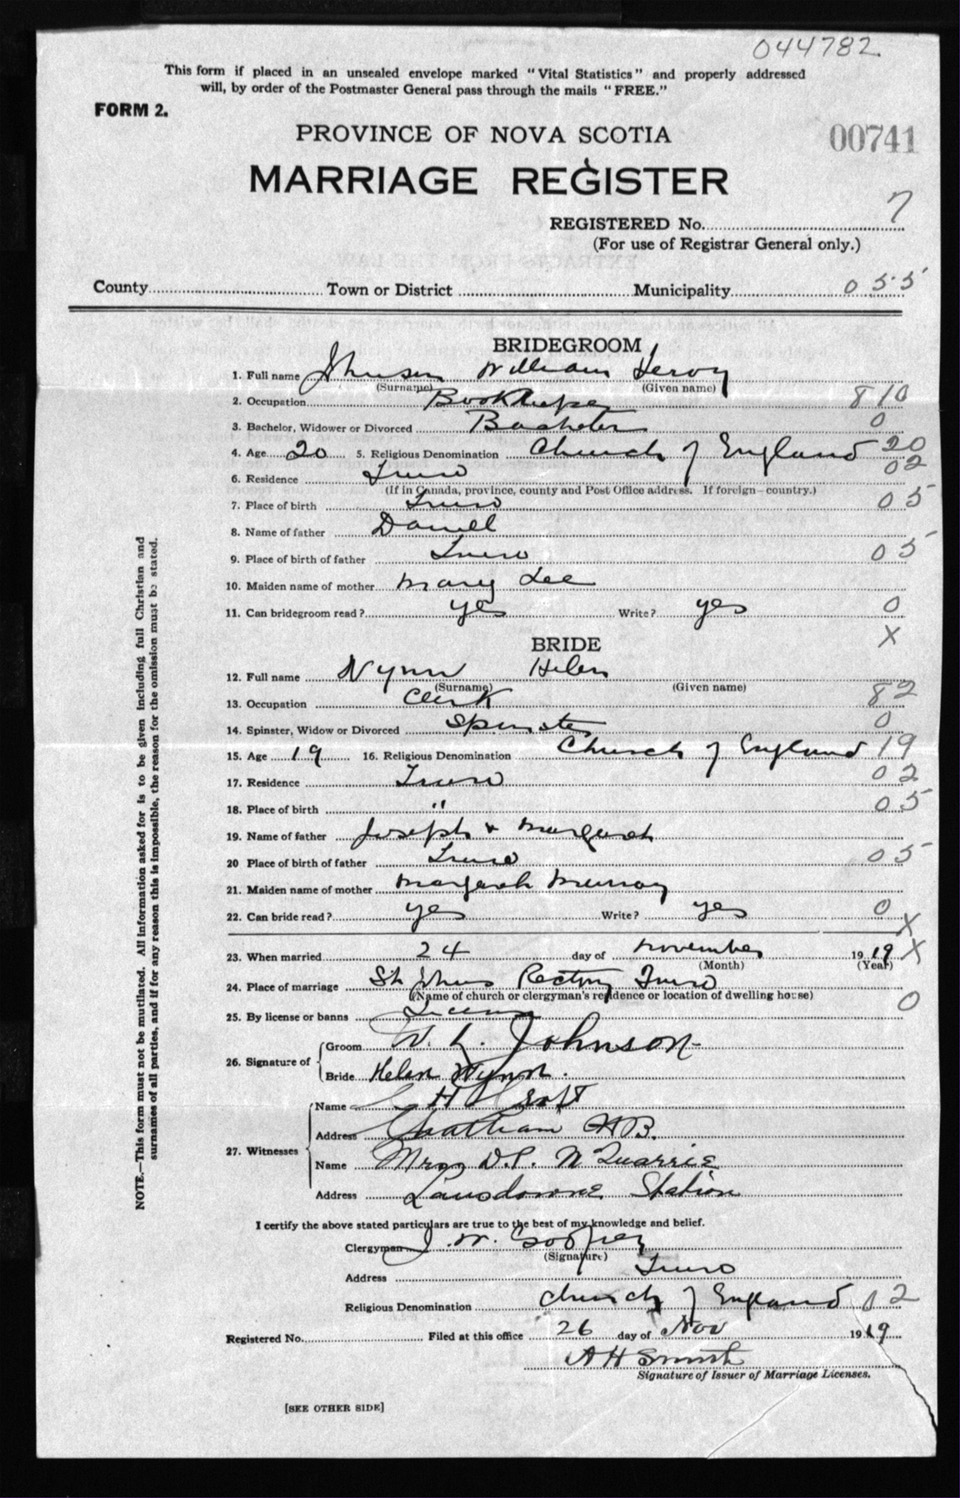 044782
This form if placed in an unsealed envelope marked "Vital Statistics" and properly addressed
will, by order of the Postmaster General pass through the mails "FREE."
FORM 2.
PROVINCE OF NOVA SCOTIA
00741
MARRIAGE REGISTER
REGISTERED No. 7
(For use of Registrar General only.)
County Town or District Municipality 055
BRIDEGROOM
1. Full name Johnson William Leroy
(Surname) (Given name)
2. Occupation Bookkeeper 810
3. Bachelor, Widower or Divorced Bachelor 0
4. Age 20 5. Religious Denomination Church of England 20
6. Residence Truro 02
(If in Canada, province, county and Post Office address. If foreign—country.)
7. Place of birth Truro 05
8. Name of father Daniel
9. Place of birth of father Truro 05
10. Maiden name of mother Mary Lee
11. Can bridegroom read? yes Write? yes 0
X
BRIDE
12. Full name Wynn Helen
(Surname) (Given name)
13. Occupation Clerk 82
14. Spinster, Widow or Divorced Spinster 0
15. Age 19 16. Religious Denomination Church of England 19
17. Residence Truro 02
18. Place of birth " 05
19. Name of father Joseph + Margaret
20 Place of birth of father Truro 05
21. Maiden name of mother Margaret Murray
22. Can bride read? yes Write? yes 0
X
23. When married 24 day of November 1919 X
(Month) (Year)
24. Place of marriage St Johns Rectory Truro
(Name of church or clergyman's residence or location of dwelling house) 0
25. By license or banns License
26. Signature of Groom W. L. Johnson
Bride Helen Wynn.
27. Witnesses
Name H Croft
Address Chatham N.B.
Name Mrs D.P. McQuarrie
Address Lansdowne Station
I certify the above stated particulars are true to the best of my knowledge and belief.
Clergyman J. W. Godfrey
(Signature)
Address Truro
Religious Denomination Church of England 02
Registered No. Filed at this office 26 day of Nov 1919
A H Smith
Signature of Issuer of Marriage Licenses.
[SEE OTHER SIDE]
NOTE.—This form must not be mutilated. All information asked for is to be given including full Christian and
surnames of all parties, and if for any reason this is impossible, the reason for the omission must be stated.